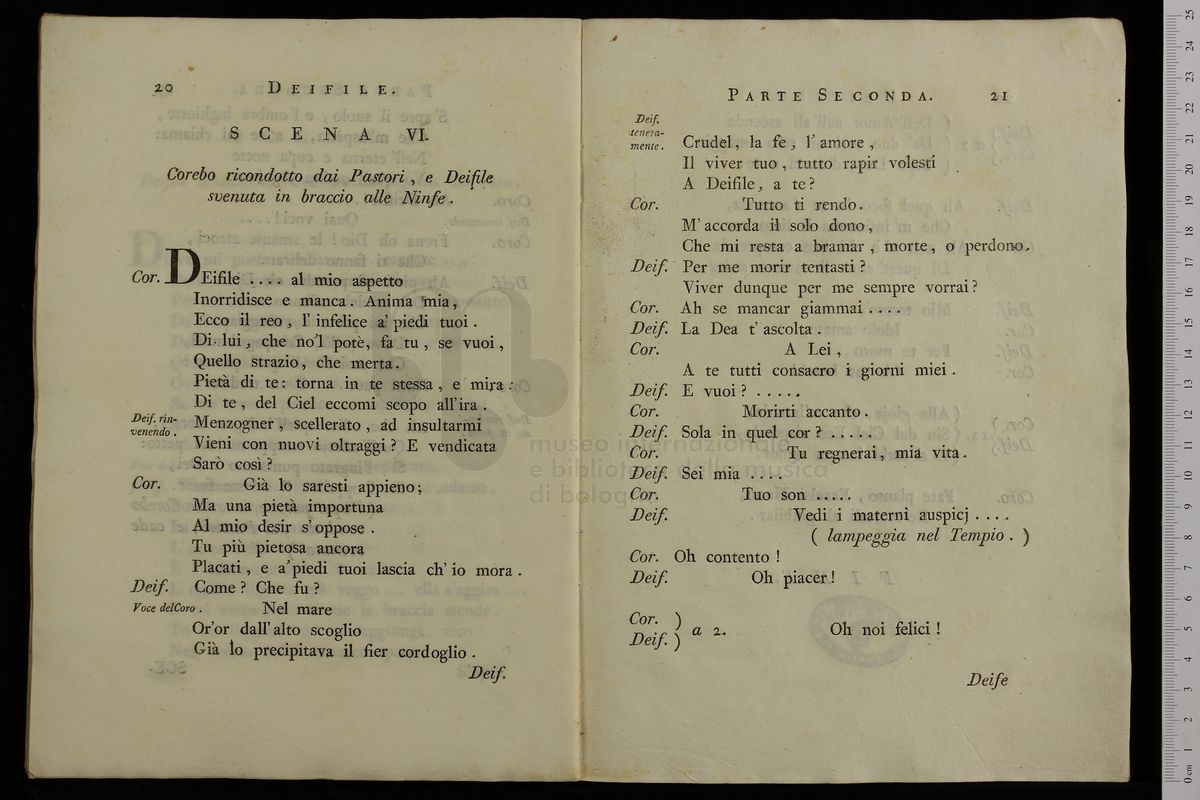 20 DEIFILE.
SCENA VI.
Corebo ricondotto dai Pastori, e Deifile
svenuta in braccio alle Ninfe.
Cor. DEifile .... al mio aspetto
Inorridisce e manca. Anima mia,
Ecco il reo, l' infelice a' piedi tuoi.
Di lui, che no'l potè, fa tu, se vuoi,
Quello strazio, che merta.
Pietà di te: torna in te stessa, e mira:
Di te, del Ciel eccomi scopo all'ira.
Deif. rin-
venendo. Menzogner, scellerato, ad insultarmi
Vieni con nuovi oltraggi? E vendicata
Sarò così?
Cor. Già lo saresti appieno;
Ma una pietà importuna
Al mio desir s' oppose.
Tu più pietosa ancora
Placati, e a' piedi tuoi lascia ch' io mora.
Deif. Come? Che fu?
Voce del Coro. Nel mare
Or'or dall' alto scoglio
Già lo precipitava il fier cordoglio.
Deif.
PARTE SECONDA. 21
Deif.
tenera-
mente. Crudel, la fè, l' amore,
Il viver tuo, tutto rapir volesti
A Deifile, a te?
Cor. Tutto ti rendo.
M' accorda il solo dono,
Che mi resta a bramar, morte, o perdono.
Deif. Per me morir tentasti?
Viver dunque per me sempre vorrai?
Cor. Ah se mancar giammai ....
Deif. La Dea t' ascolta.
Cor. A Lei,
A te tutti consacro i giorni miei.
Deif. E vuoi? .....
Cor. Morirti accanto.
Deif. Sola in quel cor? .....
Cor. Tu regnerai, mia vita.
Deif. Sei mia ....
Cor. Tuo son .....
Deif. Vedi i materni auspicj ....
( lampeggia nel Tempio. )
Cor. Oh contento!
Deif. Oh piacer!
Cor. )
Deif. ) a 2. Oh noi felici!
Deife
museo internazionale
e biblioteca della musica
di bologna
0 cm 1 2 3 4 5 6 7 8 9 10 11 12 13 14 15 16 17 18 19 20 21 22 23 24 25